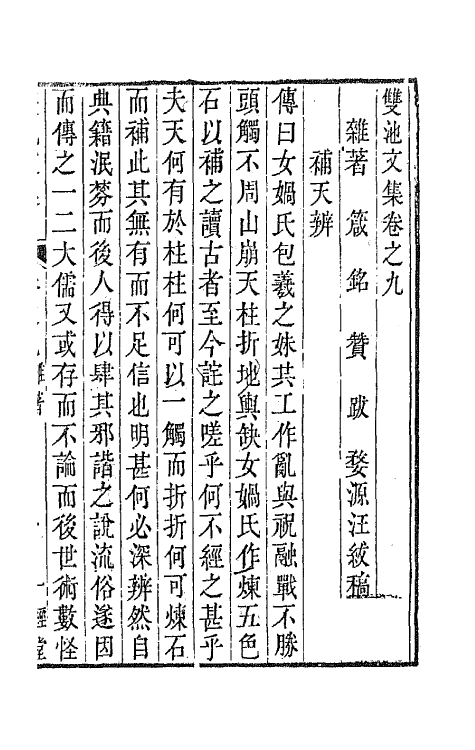 雙池文集卷之九
雜著 箴 銘 贊 跋 婺源汪紱稿
補天辨
傳曰女媧氏包羲之妹共工作亂與祝融戰不勝
頭觸不周山崩天柱折地輿缺女媧氏作煉五色
石以補之讀古者至今詫之嗟乎何不經之甚乎
夫天何有於柱柱何可以一觸而折折何可煉石
而補此其無有而不足信也明甚何必深辨然自
典籍泯棼而後人得以肆其邪譖之說流俗遂因
而傳之一二大儒又或存而不論而後世術數怪